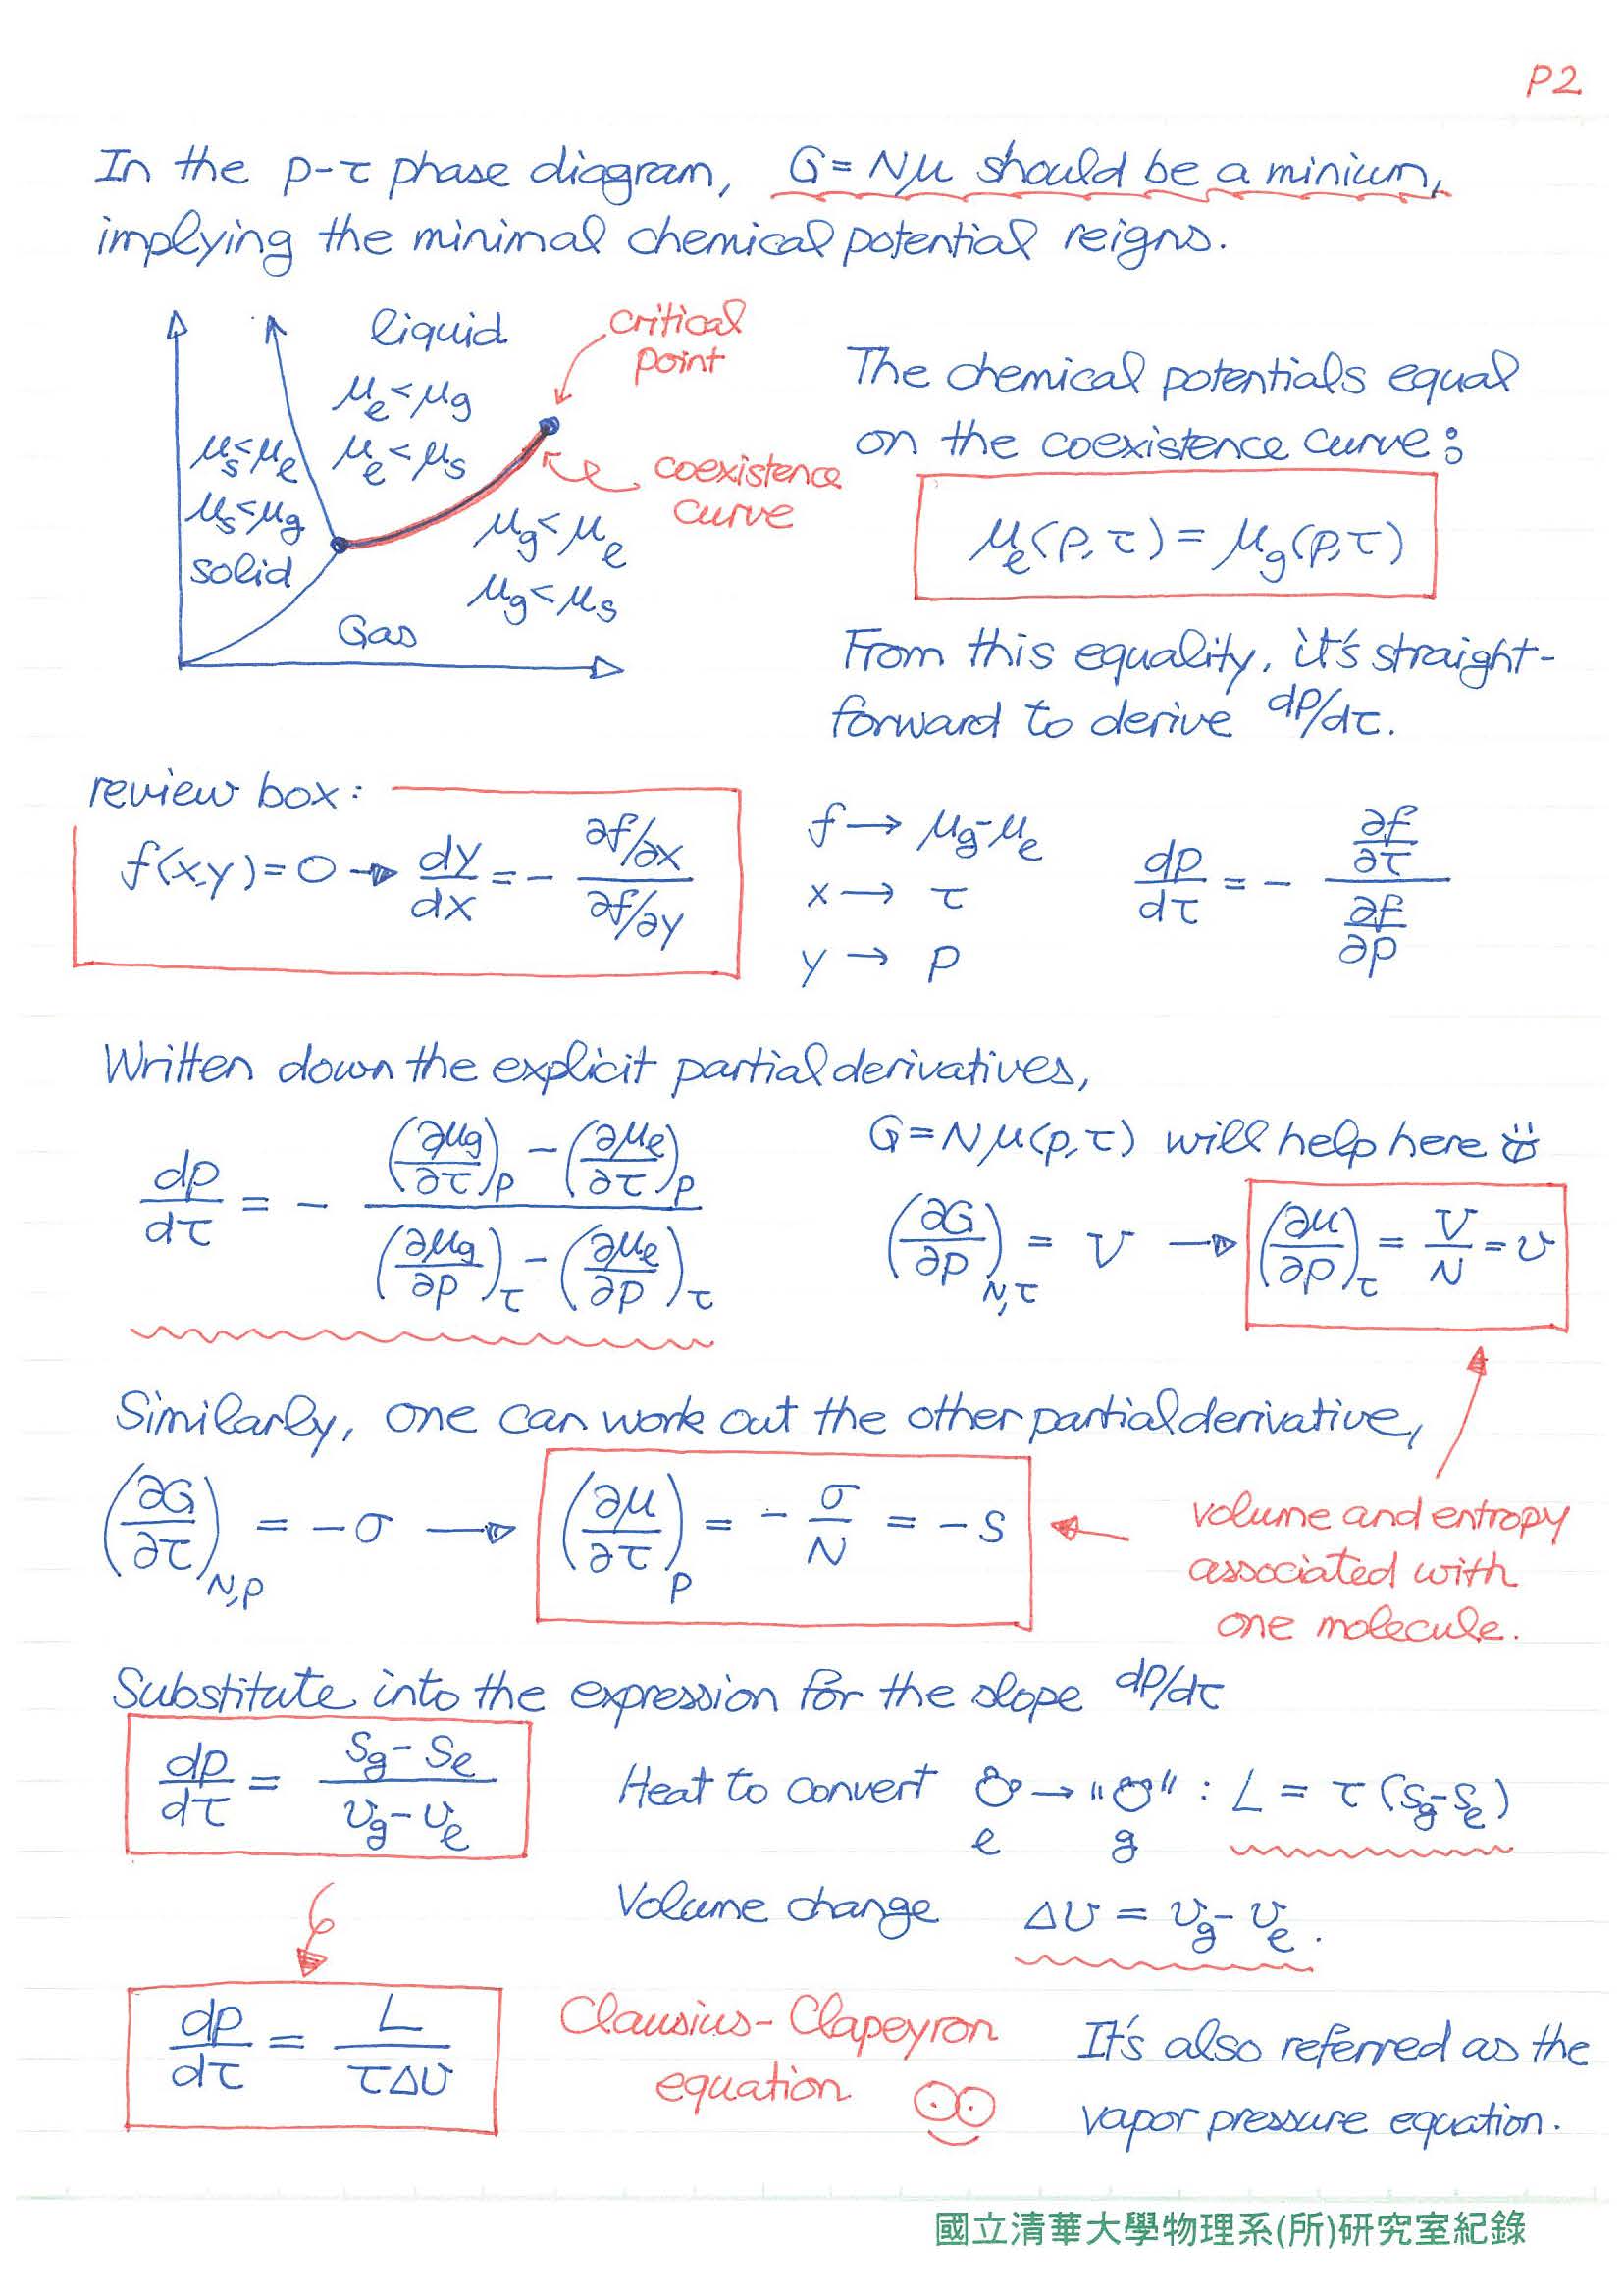 P2
In the p-τ phase diagram, G=Nμ should be a minium,
implying the minimal chemical potential reigns.
liquid
critical
point
μ_ℓ<μ_g
μ_s<μ_ℓ
μ_ℓ<μ_s
coexistence
curve
μ_s<μ_g
μ_g<μ_ℓ
solid
μ_g<μ_s
Gas
The chemical potentials equal
on the coexistence curve:
μ_ℓ(p,τ) = μ_g(p,τ)
From this equality, it's straight-
forward to derive dp/dτ.
review box:
f(x,y)=0 → dy/dx = - (∂f/∂x)/(∂f/∂y)
f → μ_g-μ_ℓ
x → τ
y → p
dp/dτ = - (∂f/∂τ)/(∂f/∂p)
Written down the explicit partial derivatives,
dp/dτ = - ((∂μ_g/∂τ)_p - (∂μ_ℓ/∂τ)_p)/((∂μ_g/∂p)_τ - (∂μ_ℓ/∂p)_τ)
G=Nμ(p,τ) will help here
(∂G/∂p)_N,τ = V → (∂μ/∂p)_τ = V/N = v
Similarly, one can work out the other partial derivative,
(∂G/∂τ)_N,p = -σ → (∂μ/∂τ)_p = - σ/N = -s
volume and entropy
associated with
one molecule.
Substitute into the expression for the slope dp/dτ
dp/dτ = (s_g-s_ℓ)/(v_g-v_ℓ)
Heat to convert → " " : L = τ(s_g-s_ℓ)
ℓ g
Volume change Δv = v_g-v_ℓ.
dp/dτ = L/(τΔv)
Clausius-Clapeyron
equation
It's also referred as the
vapor pressure equation.
國立清華大學物理系(所)研究室紀錄